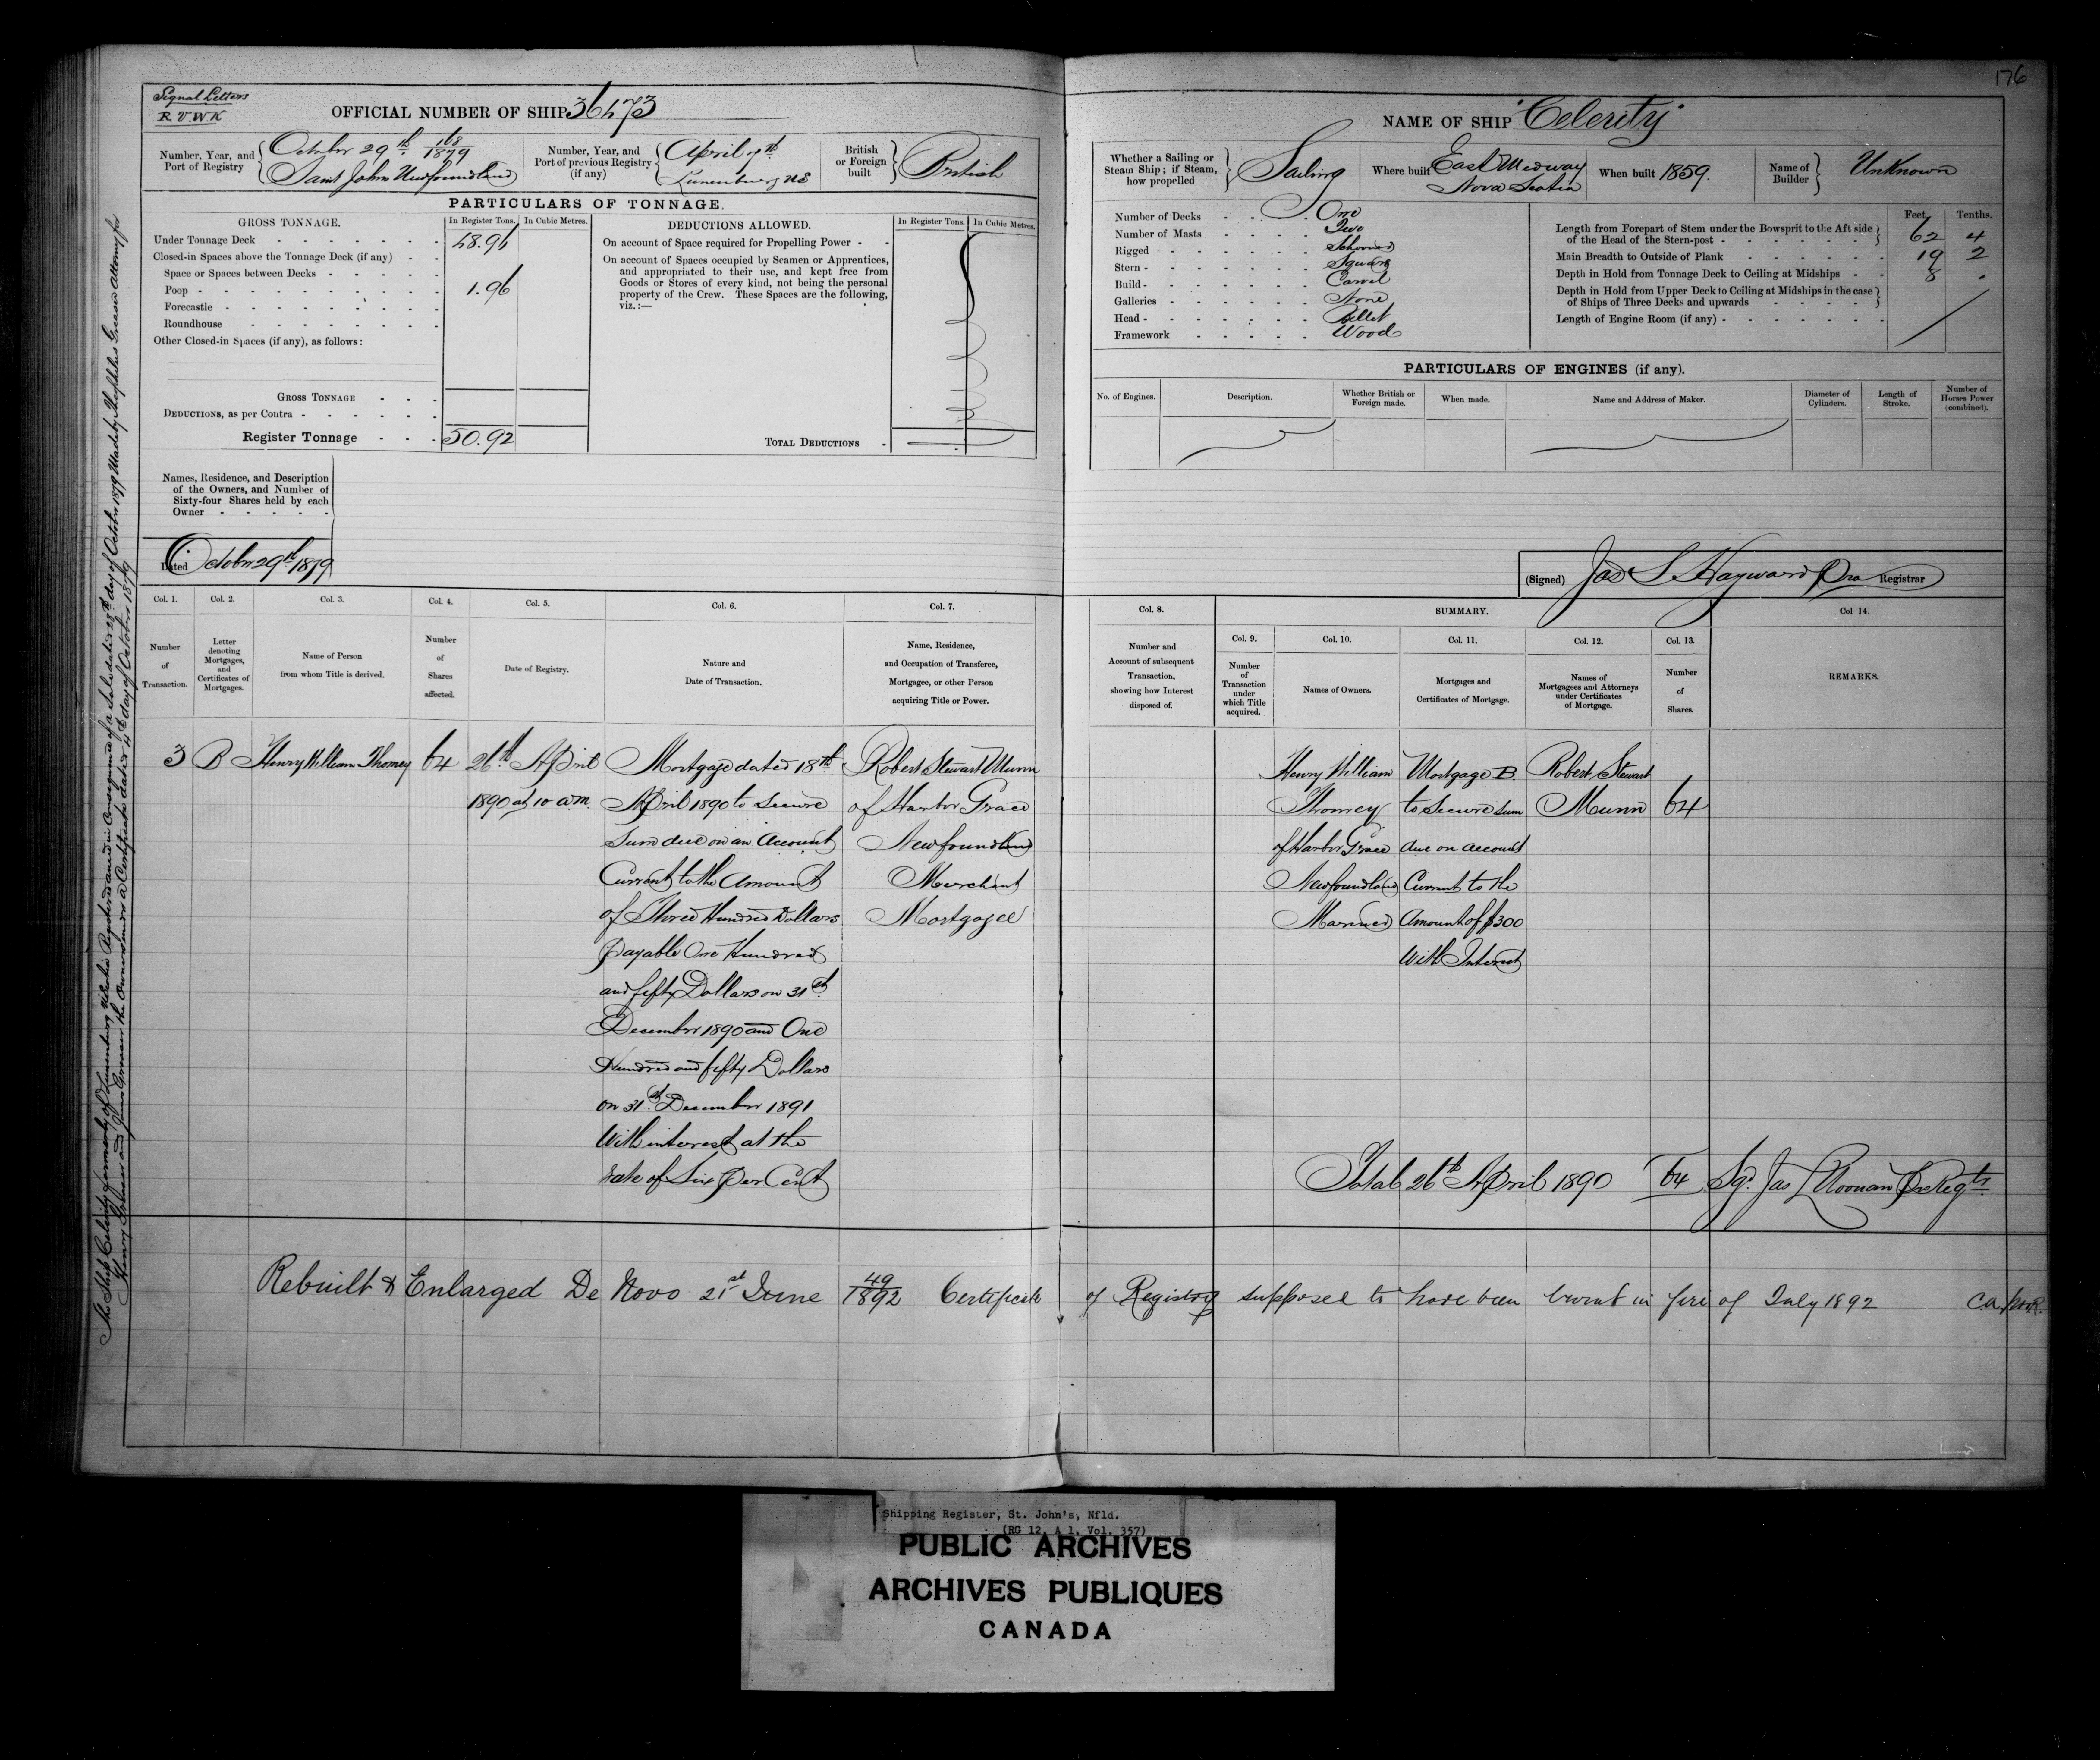 176
Signal Letters
R.V.W.K
OFFICIAL NUMBER OF SHIP 36473
NAME OF SHIP "Celerity"
Number, Year, and Port of Registry
October 29th 168/1879
Saint Johns Newfoundland
Number, Year, and Port of previous Registry (if any)
April 7th
Lunenburg NS
British or Foreign built
British
Whether a Sailing or Steam Ship; if Steam, how propelled
Sailing
Where built
East Medway
Nova Scotia
When built 1859.
Name of Builder
Unknown
PARTICULARS OF TONNAGE.
GROSS TONNAGE.
In Register Tons.
In Cubic Metres.
Under Tonnage Deck 48.96
Closed-in Spaces above the Tonnage Deck (if any)
Space or Spaces between Decks
Poop 1.96
Forecastle
Roundhouse
Other Closed-in Spaces (if any), as follows:
GROSS TONNAGE
DEDUCTIONS, as per Contra
Register Tonnage 50.92
DEDUCTIONS ALLOWED.
In Register Tons.
In Cubic Metres.
On account of Space required for Propelling Power
On account of Spaces occupied by Seamen or Apprentices,
and appropriated to their use, and kept free from
Goods or Stores of every kind, not being the personal
property of the Crew. These Spaces are the following,
viz.:—
TOTAL DEDUCTIONS
Number of Decks One
Number of Masts Two
Rigged Schooner
Stern Square
Build Carvel
Galleries None
Head Billet
Framework Wood
Feet. Tenths.
Length from Forepart of Stem under the Bowsprit to the Aft side
of the Head of the Stern-post 62 4
Main Breadth to Outside of Plank 19 2
Depth in Hold from Tonnage Deck to Ceiling at Midships 8 .
Depth in Hold from Upper Deck to Ceiling at Midships in the case
of Ships of Three Decks and upwards
Length of Engine Room (if any)
PARTICULARS OF ENGINES (if any).
No. of Engines.
Description.
Whether British or Foreign made.
When made.
Name and Address of Maker.
Diameter of Cylinders.
Length of Stroke.
Number of Horses Power (combined).
Names, Residence, and Description
of the Owners, and Number of
Sixty-four Shares held by each
Owner
Dated October 29th 1879
(Signed) Jas S Hayward Pro Registrar
Col. 1.
Number of Transaction.
Col. 2.
Letter denoting Mortgages, and Certificates of Mortgages.
Col. 3.
Name of Person from whom Title is derived.
Col. 4.
Number of Shares affected.
Col. 5.
Date of Registry.
Col. 6.
Nature and Date of Transaction.
Col. 7.
Name, Residence, and Occupation of Transferee, Mortgagee, or other Person acquiring Title or Power.
Col. 8.
Number and Account of subsequent Transaction, showing how Interest disposed of.
SUMMARY.
Col. 9.
Number of Transaction under which Title acquired.
Col. 10.
Names of Owners.
Col. 11.
Mortgages and Certificates of Mortgage.
Col. 12.
Names of Mortgagees and Attorneys under Certificates of Mortgage.
Col. 13.
Number of Shares.
Col 14.
REMARKS.
3
B
Henry William Thomey
64
26th April
1890 at 10 a.m.
Mortgage dated 18th
April 1890 to Secure
Sum due on an Account
Current to the Amount
of Three Hundred Dollars
payable One Hundred
and fifty Dollars on 31st
December 1890 and One
Hundred and fifty Dollars
on 31st December 1891
With interest at the
rate of Six per Cent
Robert Stewart Munn
of Harbor Grace
Newfoundland
Merchant
Mortgagee
Henry William
Thomey
of Harbor Grace
Newfoundland
Mariner
Mortgage B.
to Secure sum
due on account
Current to the
Amount of $300
With Interest
Robert Stewart
Munn
64
Total 26th April 1890 64 Sgd. Jas L Noonan Pro Regtr
Rebuilt & Enlarged De Novo 21st June 49/1892 Certificate of Registry supposed to have been burnt in fire of July 1892
The Ship Celerity formerly of Lunenburg Nova Scotia Registered anew in Consequence of a Sale dated 28th day of October 1879 Made by Theophilus Creaser Attorney for
Henry Gelser and James Creaser the Owners under a Certificate dated 4th day of October 1879
Shipping Register, St. John's, Nfld.
(RG 12, A 1, Vol. 357)
PUBLIC ARCHIVES
ARCHIVES PUBLIQUES
CANADA